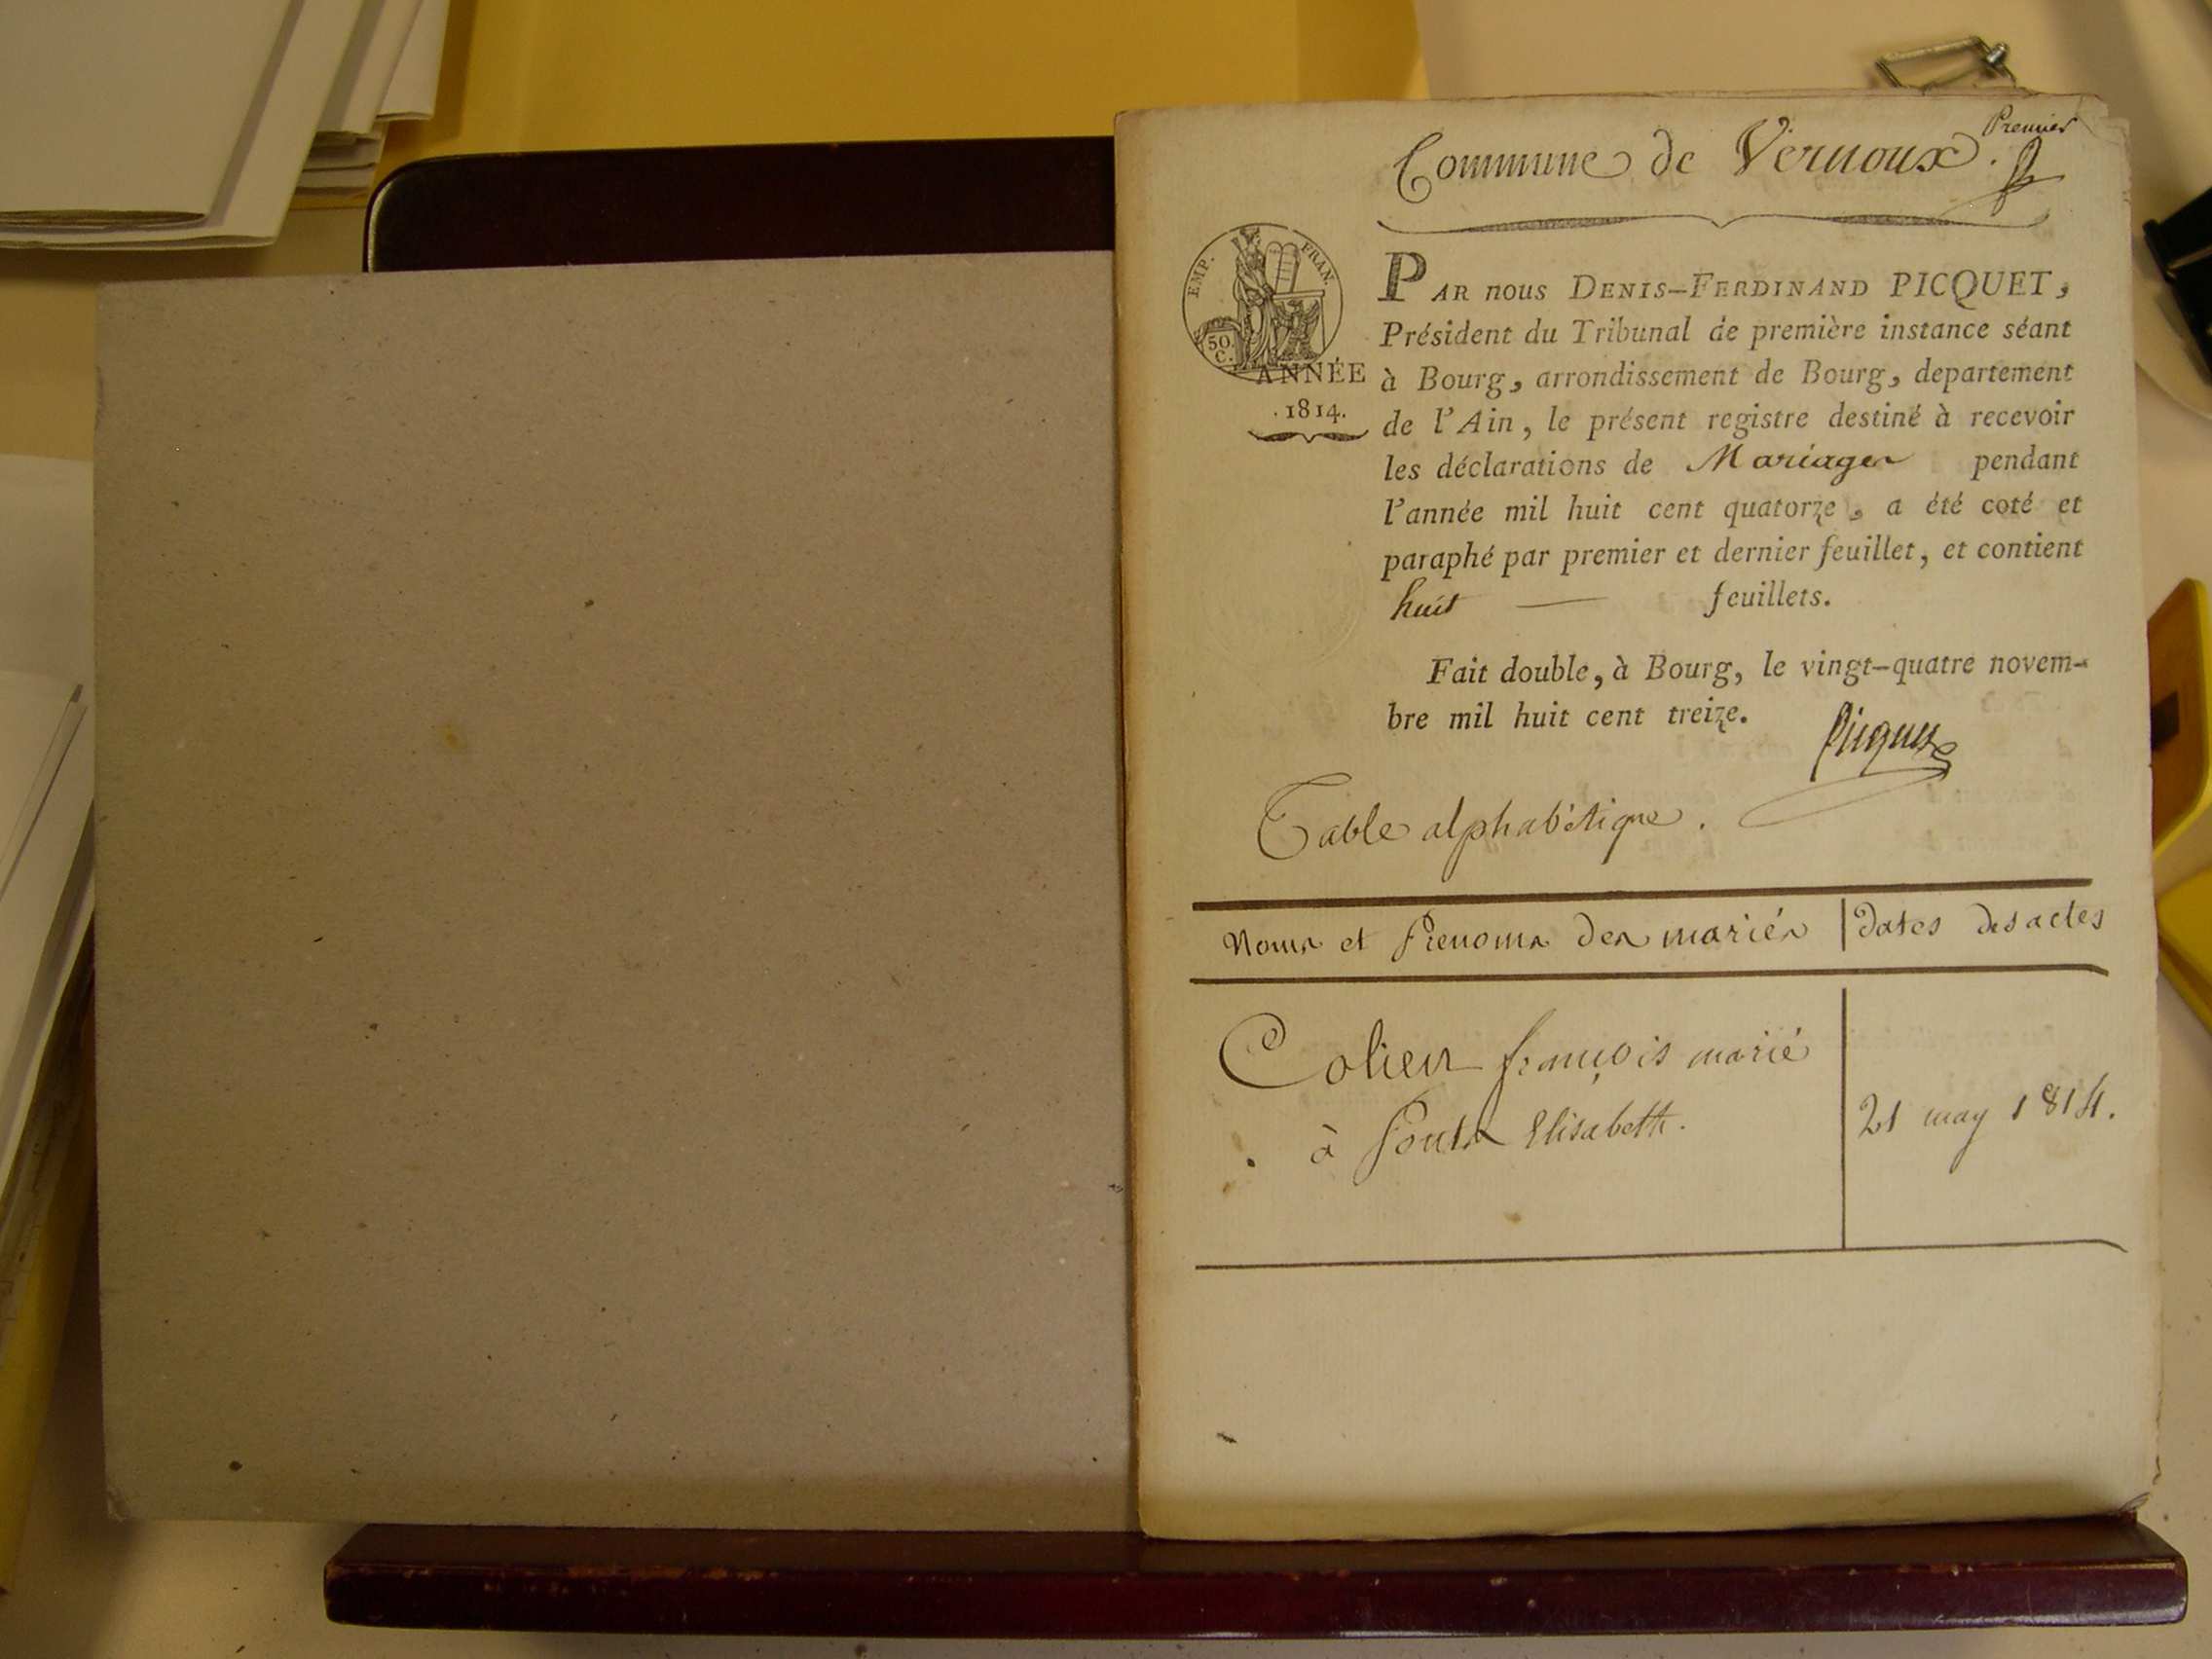 Premier
Commune de Vernoux.
EMP. FRAN.
50
C.
ANNÉE
1814.
PAR nous DENIS-FERDINAND PICQUET,
Président du Tribunal de première instance séant
à Bourg, arrondissement de Bourg, departement
de l'Ain, le présent registre destiné à recevoir
les déclarations de Mariages pendant
l'année mil huit cent quatorze, a été coté et
paraphé par premier et dernier feuillet, et contient
huit — feuillets.
Fait double, à Bourg, le vingt-quatre novem-
bre mil huit cent treize.
Picquet
Table alphabétique.
Noms et Prenoms des mariés | Dates des actes
Colien françois marié
à Elisabeth.
21 may 1814.